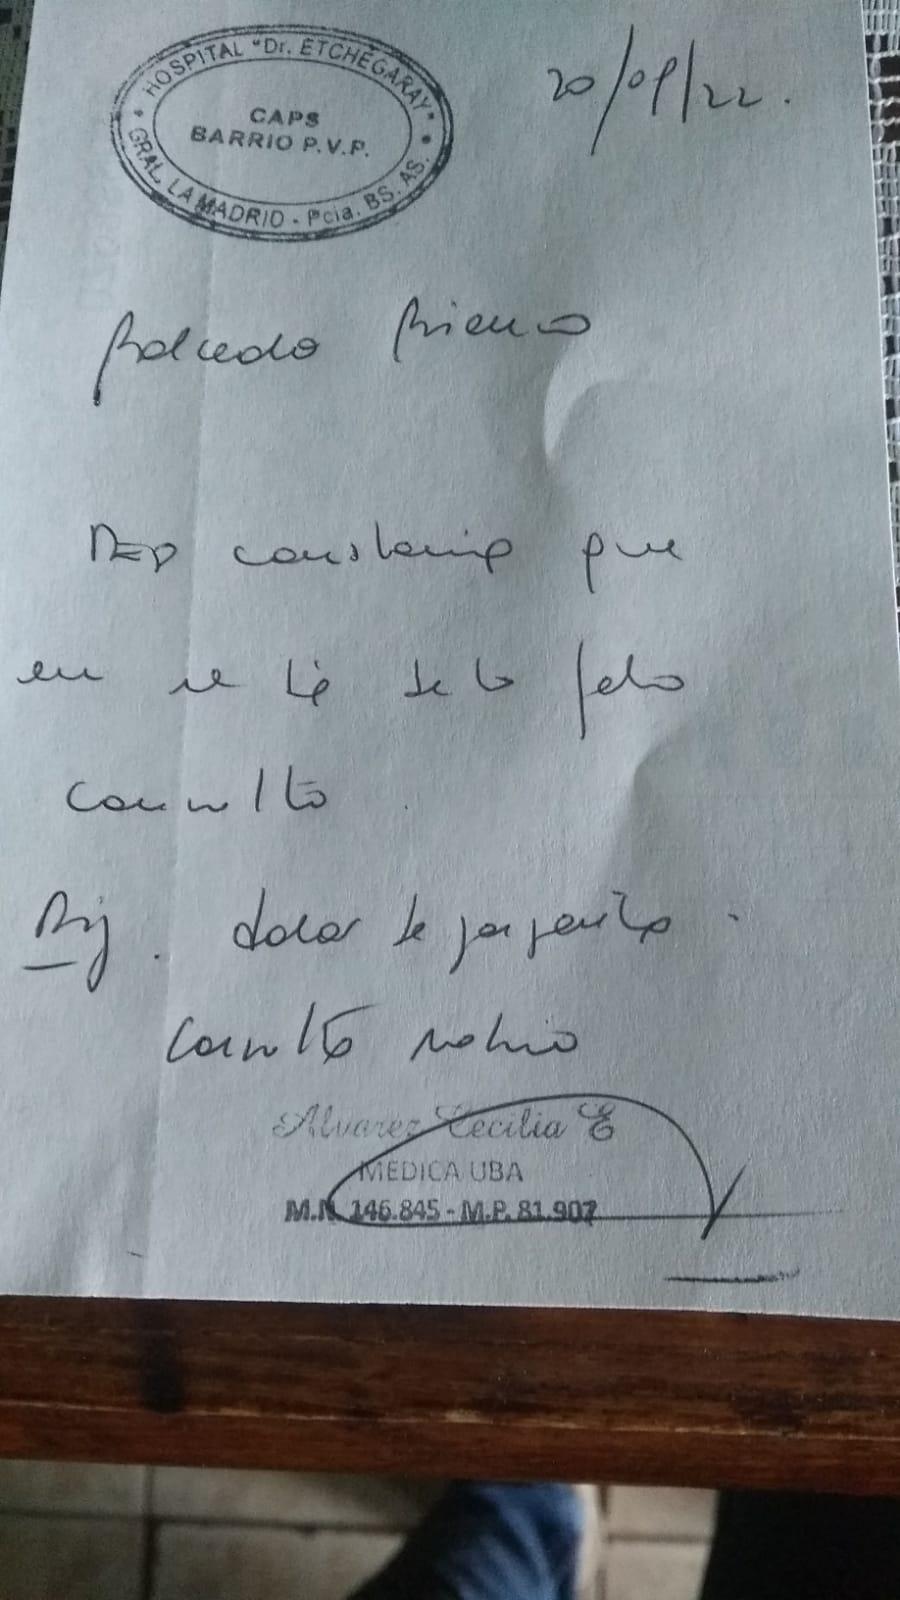 HOSPITAL "Dr. ETCHEGARAY"
CAPS
BARRIO P.V.P.
GRAL. LA MADRID - Pcia. BS. AS.
20/09/22.
Salcedo
Dejo constancia que
en el día de la fecha
consulto
Dig. dolor de garganta.
consulto
Alvarez Cecilia E
MEDICA UBA
M.N. 146.845 - M.P. 81.907